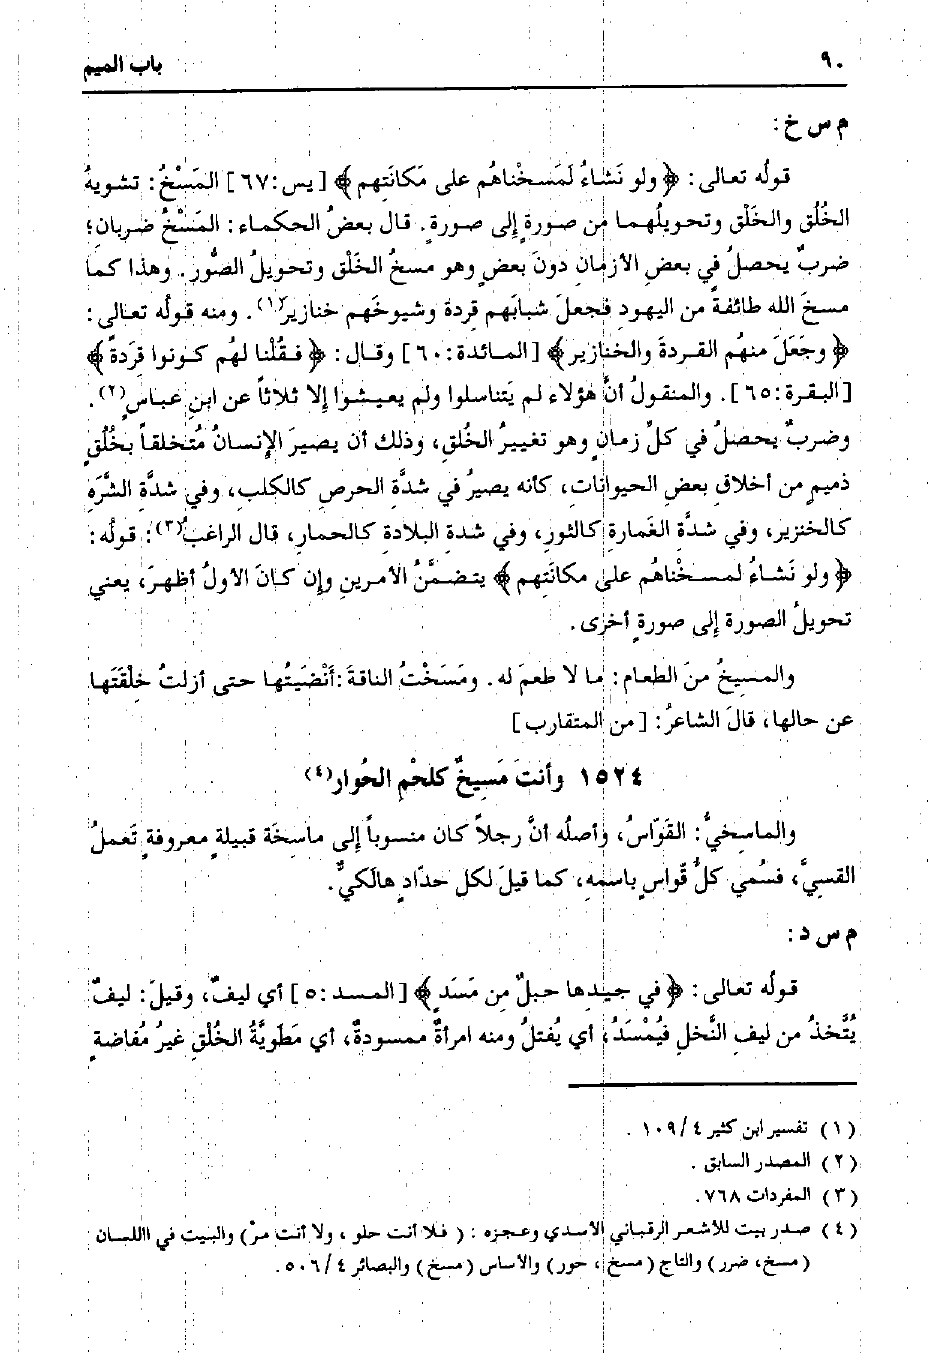 ٩٠ باب الميم
م س خ:
قولُه تعالى: ﴿ ولو نَشاءُ لَمَسخْناهُم على مَكانَتِهم ﴾ [ يس: ٦٧ ] المَسْخُ: تشويهُ
الخُلُق والخَلْق وتحويلُهما من صورة إلى صورةٍ. قال بعضُ الحكماء: المَسْخُ ضربان؛
ضربٌ يحصلُ في بعضِ الأزمانِ دونَ بعضٍ وهو مسخُ الخَلْق وتحويلُ الصُّور. وهذا كما
مسخَ الله طائفةً من اليهودِ فجعلَ شبابَهم قِردة وشيوخَهم خنازيرَ(١). ومنه قولُه تعالى:
﴿ وجَعَلَ منهُم القردةَ والخنازير ﴾ [ المائدة: ٦٠ ] وقال: ﴿ فقُلْنا لهُم كونوا قِرَدةً ﴾
[ البقرة: ٦٥ ]. والمنقولُ أنَّ هؤلاء لم يَتناسلوا ولم يعيشوا إلا ثلاثاً عن ابنِ عباسٍ(٢).
وضربٌ يحصلُ في كلِّ زمانٍ وهو تغييرُ الخُلقِ، وذلك أن يصيرَ الإنسانُ مُتخلقاً بخُلُقٍ
ذميمٍ من أخلاقِ بعضِ الحيوانات، كأنه يصيرُ في شدَّة الحرصِ كالكلبِ، وفي شدَّةِ الشَّرَهِ
كالخنزير، وفي شدَّة الغَمارةِ كالثورِ، وفي شدةِ البلادةِ كالحمارِ، قال الراغبُ(٣): قولُه:
﴿ ولو نَشاءُ لمسخْناهُم على مكانَتِهم ﴾ يتضمَّنُ الأمرينِ وإن كانَ الأولُ أظهرَ، يعني
تحويلُ الصورة إلى صورةٍ أخرى.
والمسيخُ منَ الطعام: ما لا طعمَ له. ومَسَخْتُ الناقةَ: أَنْضَيَتُها حتى أزلتُ خلْقَتَها
عن حالها، قالَ الشاعرُ: [ من المتقارب ]
١٥٢٤ وأنتَ مَسِيخٌ كلحْمِ الحُوار(٤)
والماسخيُّ: القَوّاسُ، وأصلُه أنَّ رجلاً كان منسوباً إلى ماسِخَة قبيلةٍ معروفةٍ تَعملُ
القسيَّ، فسُمي كلُّ قُواسٍ باسمهِ، كما قيلَ لكل حدّادٍ هالَكيٌّ.
م س د:
قولُه تعالى: ﴿ في جيدها حبلٌ مِن مَسَدٍ ﴾ [ المسد: ٥ ] أي ليفٌ، وقيلَ: ليفٌ
يُتَّخذُ من ليفِ النَّخلِ فيُمْسَدُ، أي يُفتلُ ومنه امرأةٌ ممسودةٌ، أي مَطويَّةُ الخُلْقِ غيرُ مُفاضةٍ
(١) تفسير ابن كثير ٤/ ١٠٩ .
(٢) المصدر السابق .
(٣) المفردات ٧٦٨.
(٤) صدر بيت للأشعر الرقباني الأسدي وعجزه : ( فلا أنت حلو ، ولا أنت مرّ ) والبيت في االلسان
( مسخ، ضرر ) والتاج ( مسخ ، حور ) والأساس ( مسخ ) والبصائر ٤/ ٥٠٦.